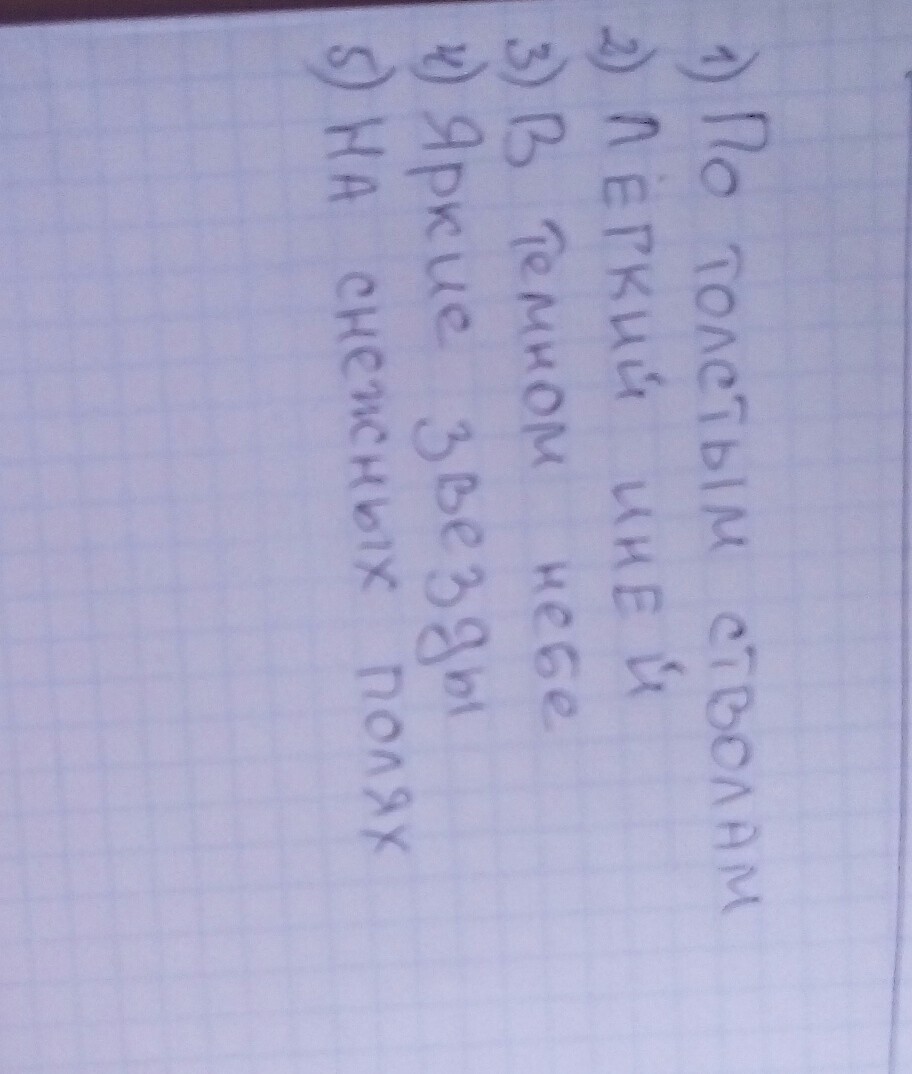 1) По толстым стволам
2) ЛЁГКИЙ ИНЕЙ
3) В темном небе
4) Яркие звезды
5) НА снежных полях